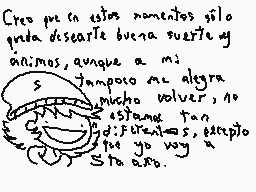 Creo que en estos momentos sólo
queda desearte buena suerte y
ánimos, aunque a mi
tampoco me alegra
mucho volver, no
estamos tan
diferentes, excepto
que yo voy a
5to año.
S